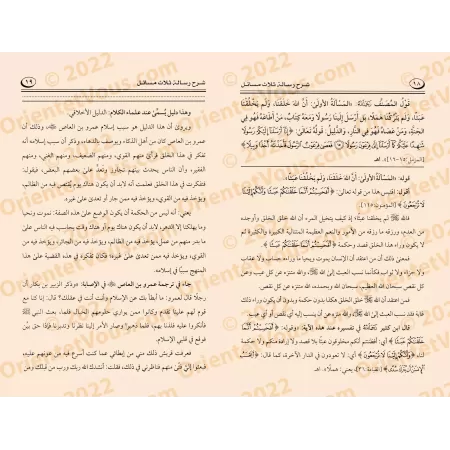 ١٨ شرح رسالة ثلاث مسائل
قَولُ المُصَنِّف رَحِمَهُ اللهُ: «المَسألةُ الأُولَىٰ: أنَّ اللهَ خَلَقَنَا، وَلَم يَخلُقنَا
عَبَثًا، وَلَم يَترُكنَا هَمَلًا، بَل أَرسَلَ إِلَينَا رَسُولًا وَمَعَهُ كِتَابٌ، مَن أَطَاعَهُ فَهُو فِي
الجَنَّةِ، وَمَن عَصَاهُ فَهُو فِي النَّارِ، وَالدَّلِيلُ قَولُهُ تَعَالَىٰ: ﴿إِنَّا أَرْسَلْنَا إِلَيْكُمْ رَسُولًا
شَاهِدًا عَلَيْكُمْ كَمَا أَرْسَلْنَا إِلَىٰ فِرْعَوْنَ رَسُولًا فَعَصَىٰ فِرْعَوْنُ الرَّسُولَ فَأَخَذْنَاهُ أَخْذًا وَبِيلًا﴾
[المزمل: ١٥-١٦]». اهـ
«المَسألةُ الأُولَىٰ: أنَّ اللهَ خَلَقَنَا، وَلَم يَخلُقنَا عَبَثًا»:
أقول: اقتبس هذا من قوله تعالىٰ: ﴿أَفَحَسِبْتُمْ أَنَّمَا خَلَقْنَاكُمْ عَبَثًا وَأَنَّكُمْ إِلَيْنَا
لَا تُرْجَعُونَ﴾ [المؤمنون: ١١٥].
فالله ﷻ لم يخلقنا عبثًا؛ إذ كيف يتخيل المرء أن الله خلق الخلق وأوجده
من العدم، ورزقه ما رزقه من الأمور والنعم المتمثلة الكبيرة والكثيرة ثم
لا يكون وراء هذا الخلق قصد وحكمة ﴿أَفَحَسِبْتُمْ أَنَّمَا خَلَقْنَاكُمْ عَبَثًا﴾.
ومن اعتقد من أن الإنسان يموت ويحيا ما وراءه حساب ولا عقاب
ولا جزاء ولا ثواب فكأنما نسب العبث إلى الله ﷻ، والله منزه عن كل عيب وعن
نقص سبحان الله العظيم، سبحان الله وبحمده، والله منزه عن كل نقص.
فمن اعتقد أن الله ﷻ خلق الخلق هكذا بدون حكمة وبدون أن يكون وراء ذلك
قصد أو مآل؛ فقد نسب العبث إلى الله سبحانه وهو منزه عن أي نقص أو أي عيب.
قال ابن كثير رَحِمَهُ اللهُ في تفسيره عند هذه الآية: «وقوله: ﴿أَفَحَسِبْتُمْ أَنَّمَا
خَلَقْنَاكُمْ عَبَثًا﴾ أي: أفظننتم أنكم مخلوقون عبثًا بلا قصد ولا إرادة منكم ولا حكمة لنا،
﴿وَأَنَّكُمْ إِلَيْنَا لَا تُرْجَعُونَ﴾ أي: لا تعودون في الدار الآخرة، كما قال: ﴿أَيَحْسَبُ
الْإِنْسَانُ أَنْ يُتْرَكَ سُدًى﴾ [القيامة: ٣٦]، يعني: هملًا». اهـ
شرح رسالة ثلاث مسائل ١٩
وهذا دليل يُسمَّىٰ عند علماء الكلام: الدليل الأخلاقي.
ويروىٰ أن هذا الدليل هو سبب إسلام عمرو بن العاص ﵁، وذلك أن
عمرو بن العاص كان من أهل الذكاء، ويوصف بالدهاء، وذكر أن سبب إسلامه أنه
تفكر في هذا الخلق فرأىٰ منهم القوي، ومنهم الضعيف، ومنهم الغني، ومنهم
الفقير، وأن الناس يحدث بينهم تجاوز وتعدٍّ علىٰ بعضهم البعض، فيقول:
فتفكرت في هذا الخلق فعلمت أنه لابد أن يكون هناك يوم يُقتص فيه من الظالم،
ويؤخذ فيه من القوي، ويؤخذ فيه ممن جار أو تعدىٰ علىٰ غيره.
يعني: أنه ليس من الحكمة أن يكون الوضع علىٰ هذه الصفة: نموت ونحيا
وما يهلكنا إلا الدهر، لابد أن يكون هناك يوم أو هناك وقت يحاسب فيه الناس علىٰ
ما بدر منهم من عمل، ويؤخذ فيه من الظالم، ويؤخذ فيه من الجائر، ويؤخذ فيه من
القوي، ويؤخذ فيه ممن تعدىٰ علىٰ غيره؛ فكان تفكيره في هذه القضية علىٰ هذا
المنهج سببًا في إسلامه.
جاء في ترجمة عمرو بن العاص ﵁ في الإصابة: «وذكر الزبير بن بكار أن
رجلًا قال لعمرو: ما أبطأ بك عن الإسلام وأنت أنت في عقلك؟ قال: إنا كنا مع
قوم لهم علينا تقدم وكانوا ممن يواري حلومهم الخبال، فلما بعث النبي ﷺ
فأنكروا عليه فلذنا بهم، فلما ذهبوا وصار الأمر إلينا نظرنا وتدبرنا فإذا حق بيّن
فوقع في قلبي الإسلام.
فعرفت قريش ذلك مني من إبطائي عما كنت أسرع فيه من عونهم عليه،
فبعثوا إليَّ فتىٰ منهم فناظرني في ذلك، فقلت: أنشدك الله ربك ورب من قبلك ومن
© 2022
OrientVous.com